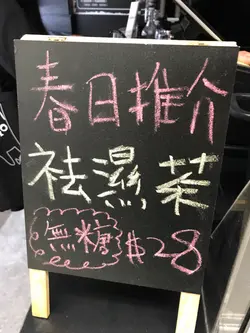 春日推介
祛濕茶
無糖 $28